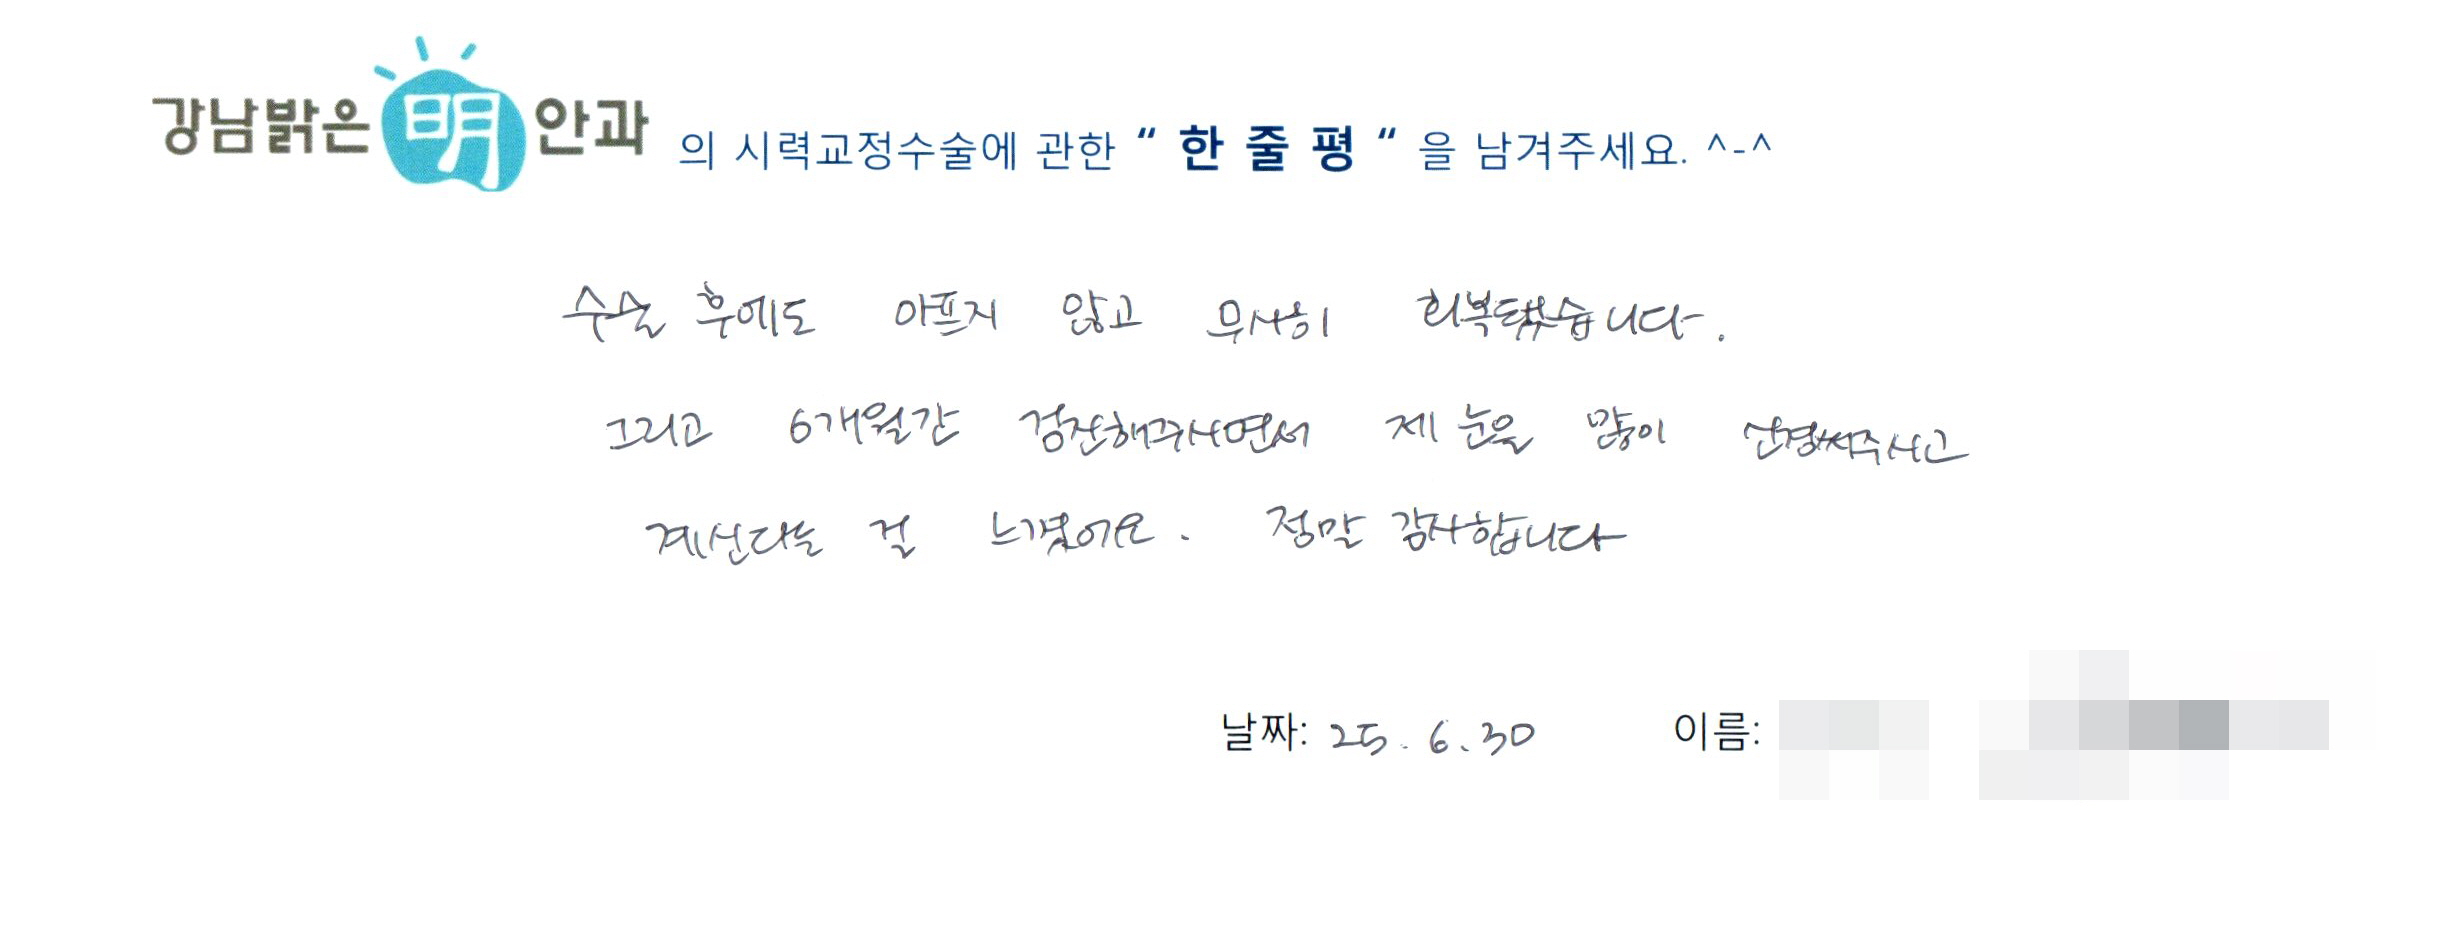 강남밝은明안과 의 시력교정수술에 관한 “ 한 줄 평 “ 을 남겨주세요. ^-^
수술 후에도 아프지 않고 무사히 회복됐습니다.
그리고 6개월간 검진해주시면서 제 눈을 많이 신경써주시고
계신다는 걸 느꼈어요. 정말 감사합니다
날짜: 25. 6. 30 이름: